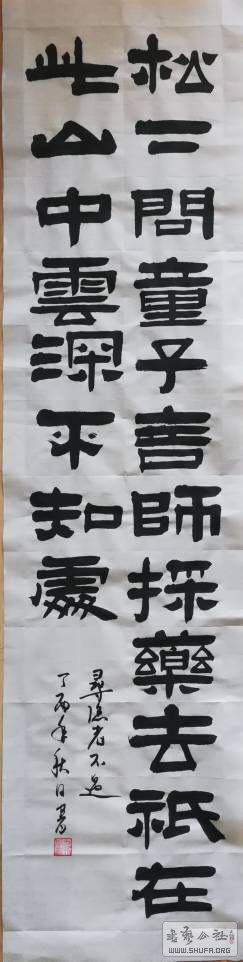 松二問童子言師採藥去祇在
此山中雲深不知處
尋隱者不遇
丁丙年秋日書
書藝公社
WWW.SHUFA.ORG